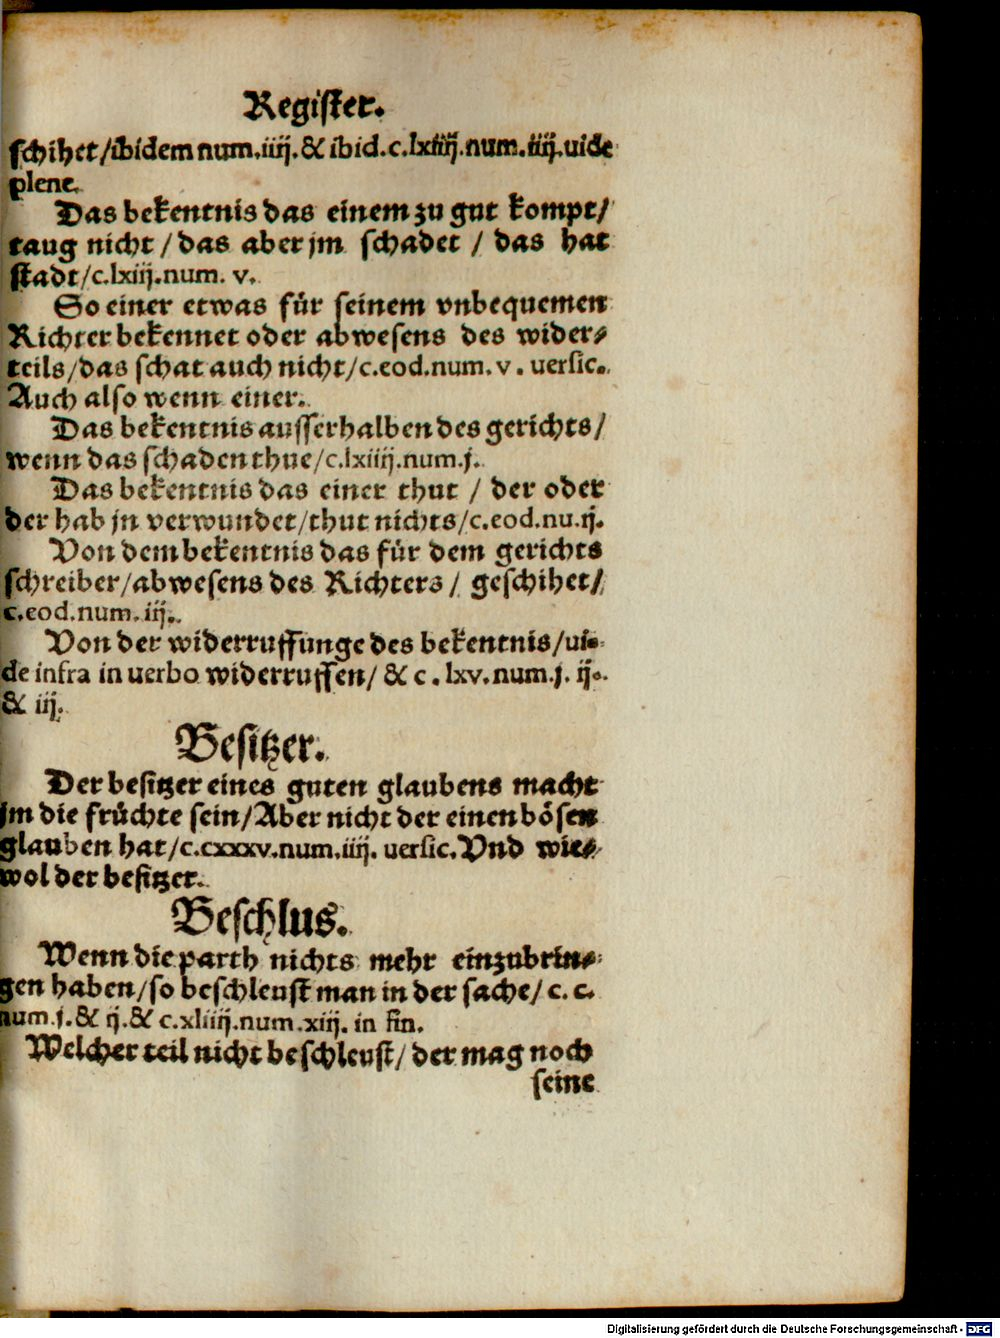 Register.
schihet/ibidem num.iiij.& ibid.c.lxiiij.num.iiij.uide
plene.
Das bekentnis das einem zu gut kompt/
taug nicht / das aber jm schadet / das hat
stadt/c.lxiij.num. v.
So einer etwas für seinem vnbequemen
Richter bekennet oder abwesens des wider-
teils/das schat auch nicht/c.eod.num. v. uersic.
Auch also wenn einer.
Das bekentnis ausserhalben des gerichts/
wenn das schaden thue/c.lxiiij.num.j.
Das bekentnis das einer thut / der oder
der hab jn verwundet/thut nichts/c.eod.nu.ij.
Von dem bekentnis das für dem gerichts
schreiber/abwesens des Richters / geschihet/
c.eod.num.iij.
Von der widerruffunge des bekentnis/ui-
de infra in uerbo widerruffen/ & c. lxv.num.j. ij.
& iij.
Besitzer.
Der besitzer eines guten glaubens macht
jm die früchte sein/Aber nicht der einen bösen
glauben hat/c.cxxxv.num.iiij. uersic.Vnd wie-
wol der besitzer.
Beschlus.
Wenn die parth nichts mehr einzubrin-
gen haben/so beschleust man in der sache/ c. c.
num.j.& ij.& c.xliiij.num.xiij. in fin.
Welcher teil nicht beschleust/ der mag noch
seine
Digitalisierung gefördert durch die Deutsche Forschungsgemeinschaft - DFG